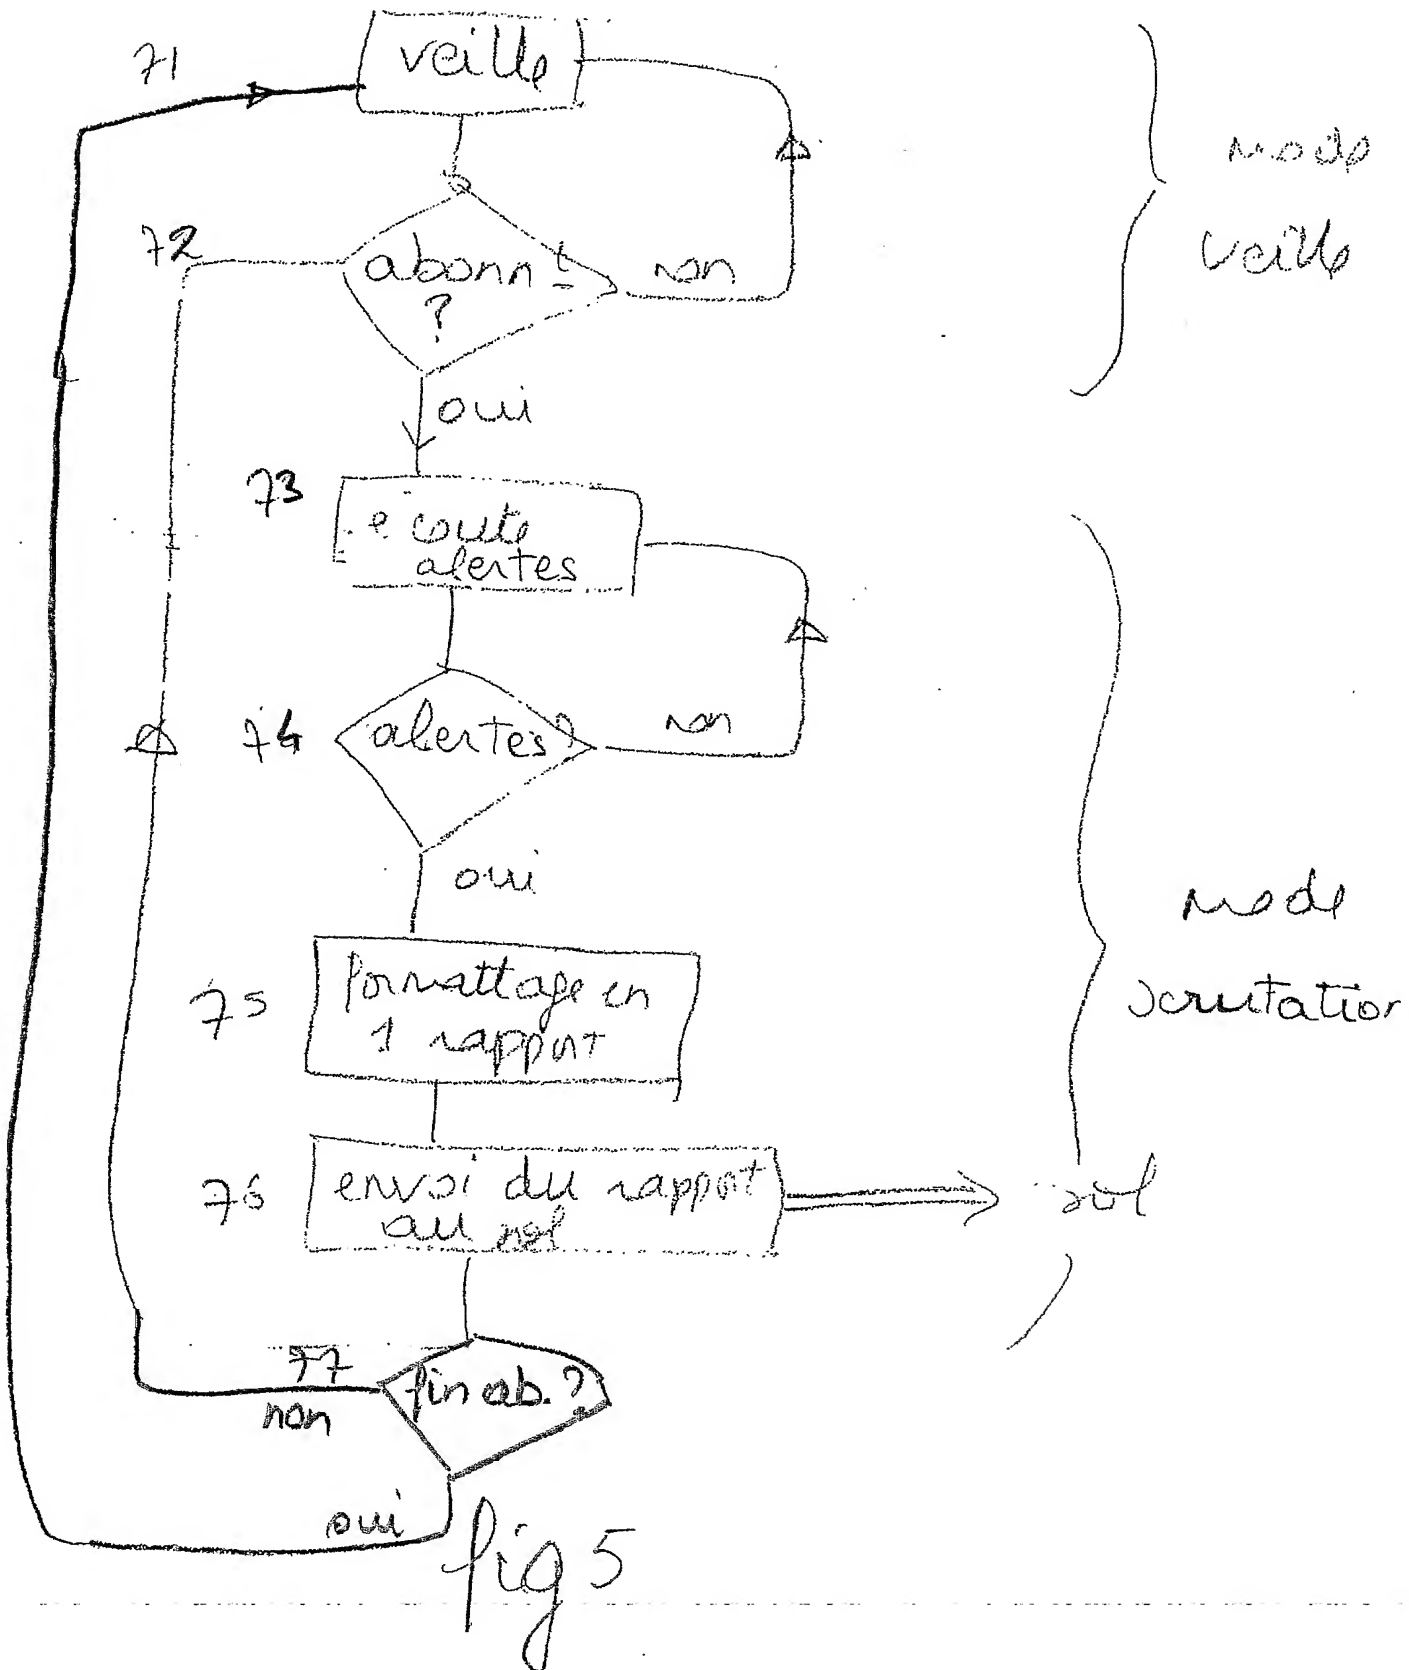 71
veille
mode
veille
72
abonnt
?
non
oui
73
ecoute
alertes
74
alertes?
non
oui
mode
scrutation
75
formattage en
1 rapport
76
envoi du rapport
au sol
sol
77
non
fin ab. ?
oui
fig 5